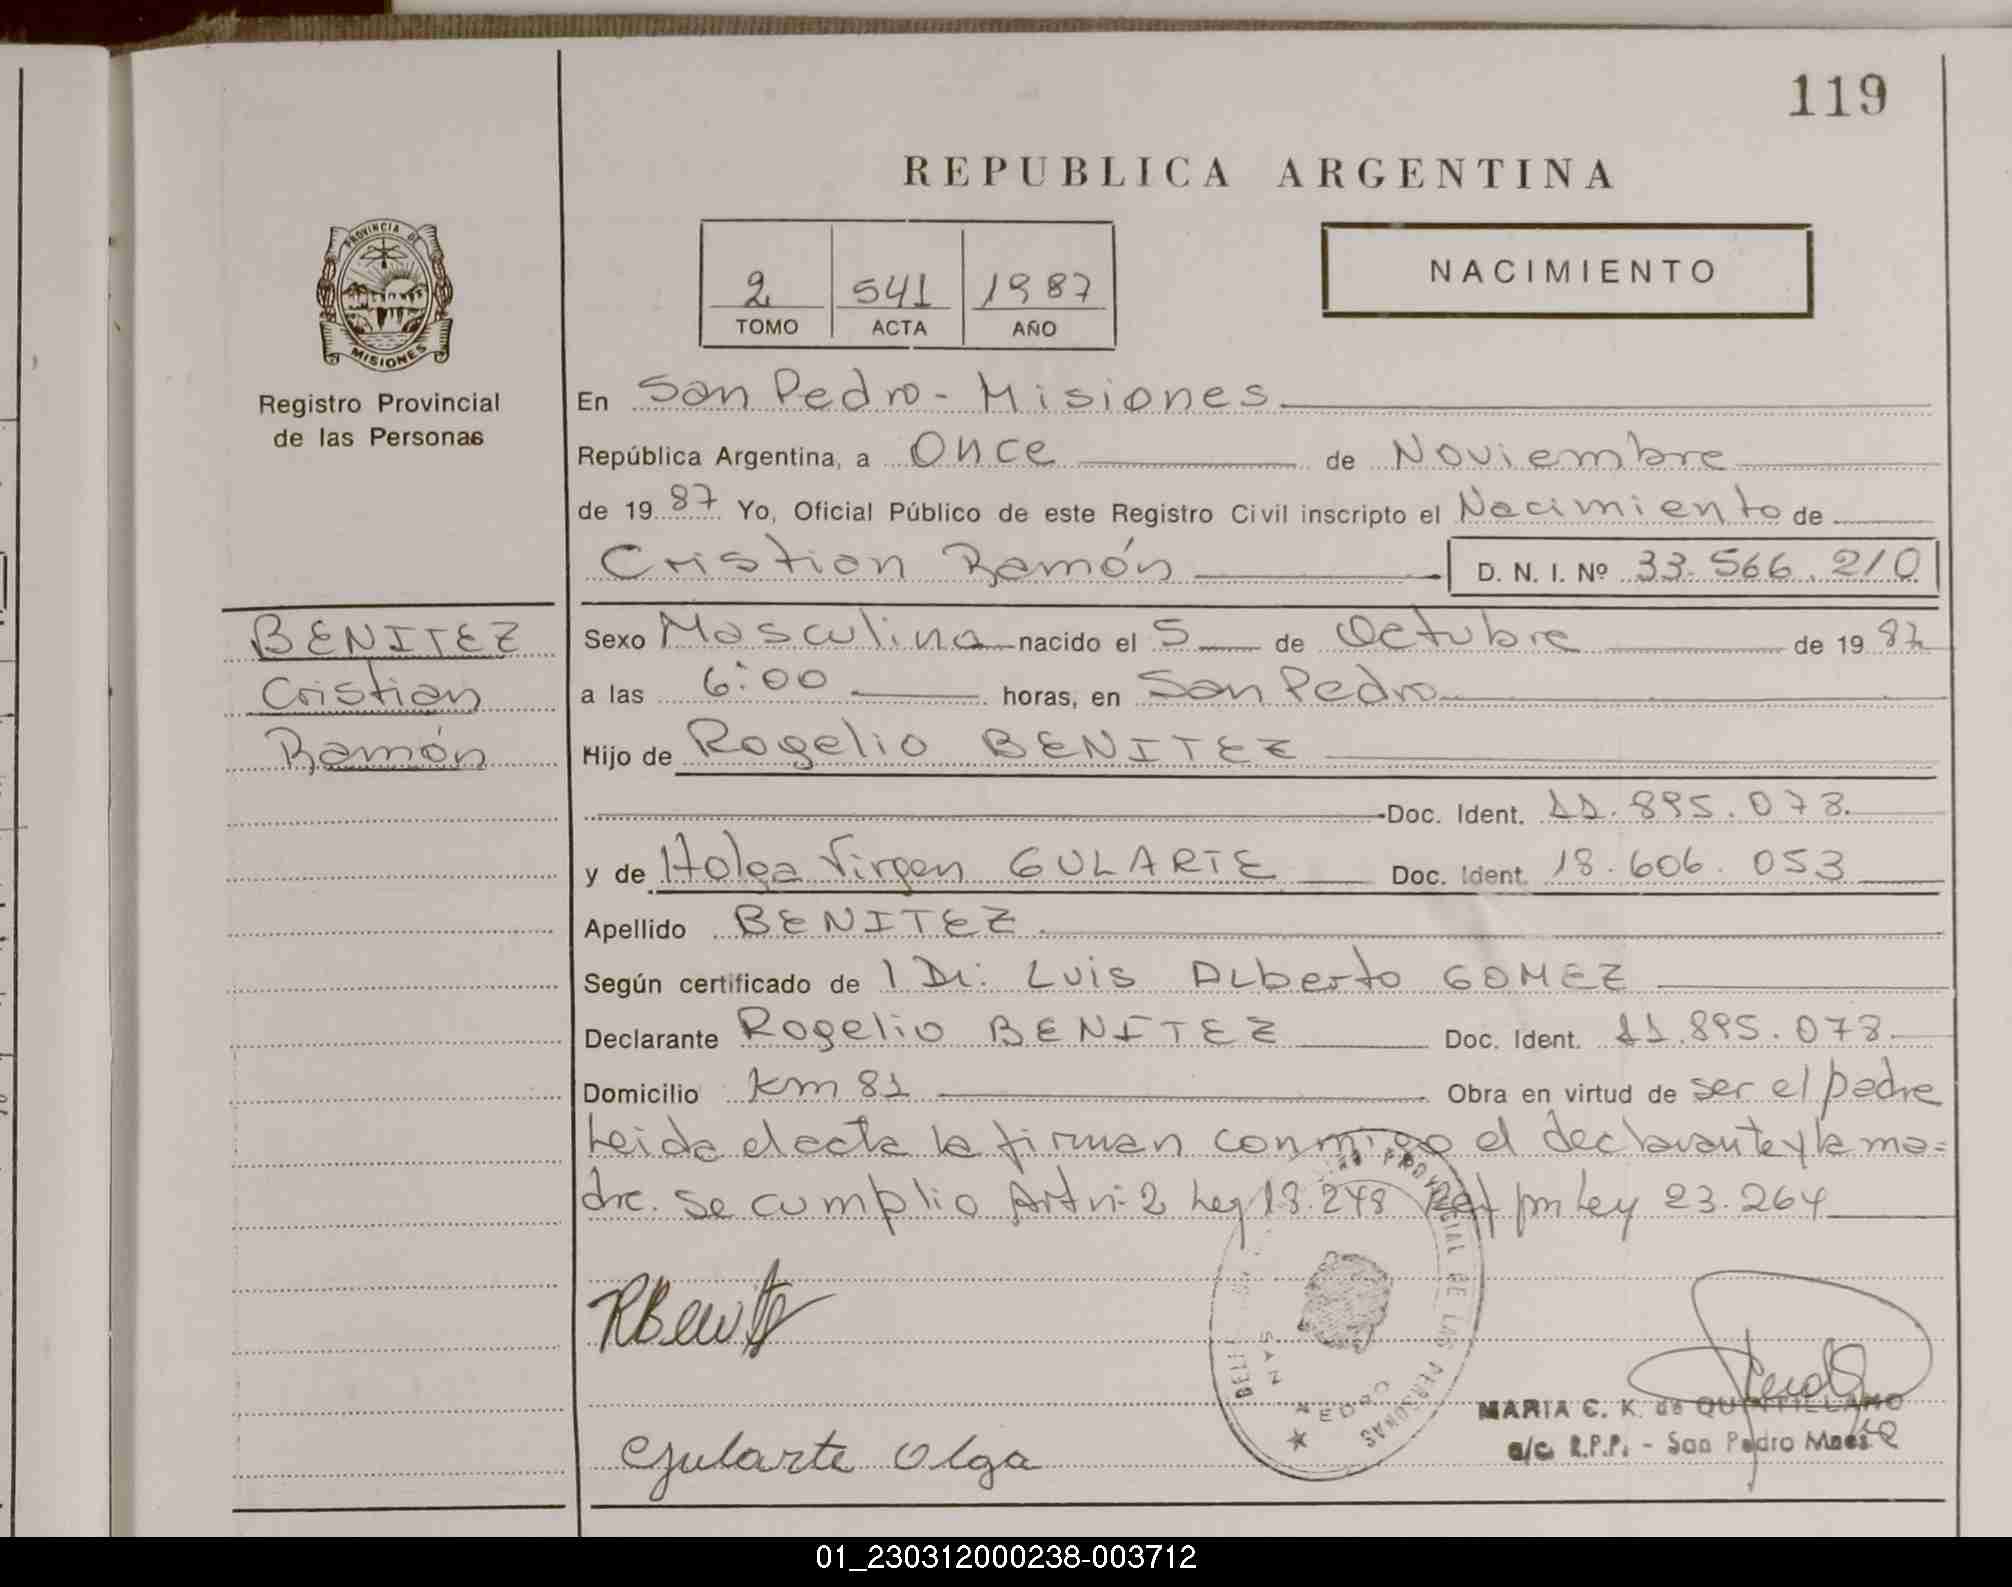 119
REPUBLICA ARGENTINA
PROVINCIA DE
MISIONES
Registro Provincial
de las Personas
2 541 1987
TOMO ACTA AÑO
NACIMIENTO
En San Pedro - Misiones
República Argentina, a Once de Noviembre
de 1987 Yo, Oficial Público de este Registro Civil inscripto el Nacimiento de
Cristian Ramón D. N. I. Nº 33.566.210
BENITEZ
Cristian
Ramón
Sexo Masculino nacido el 5 de Octubre de 1987
a las 6:00 horas, en San Pedro
Hijo de Rogelio BENITEZ
Doc. Ident. 11.895.078
y de Holga Virgen GULARTE Doc. Ident. 18.606.053
Apellido BENITEZ
Según certificado de l Dr. Luis Alberto GOMEZ
Declarante Rogelio BENITEZ Doc. Ident. 11.895.078
Domicilio km 81 Obra en virtud de ser el padre
Leida el acta la firman conmigo el declarante y la ma=
dre. se cumplio Art nº 2 Ley 18.248 por Ley 23.264
RBenitez
Gularte Olga
PROVINCIAL DE LAS PERSONAS
SAN PEDRO
MARIA C. K. de QUINTILLANO
a/c. R.P.P. - San Pedro Mnes
01_230312000238-003712